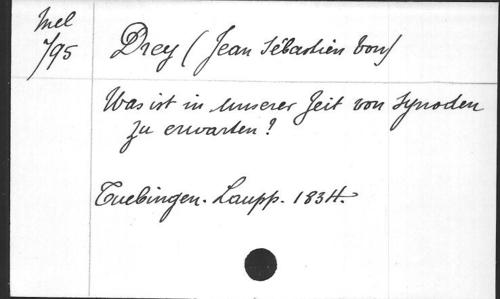 Mel
7/95
Drey (Jean Sébastien von)
Was ist in unserer Zeit von Synoden
zu erwarten?
Tuebingen. Laupp. 1834.